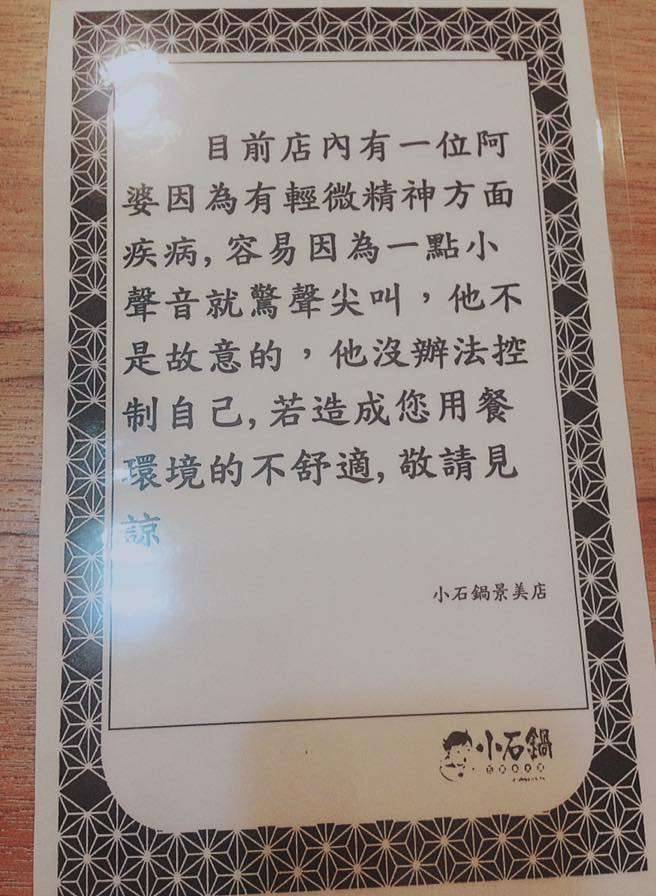 目前店內有一位阿
婆因為有輕微精神方面
疾病,容易因為一點小
聲音就驚聲尖叫,他不
是故意的,他沒辦法控
制自己,若造成您用餐
環境的不舒適,敬請見
諒
小石鍋景美店
小石鍋